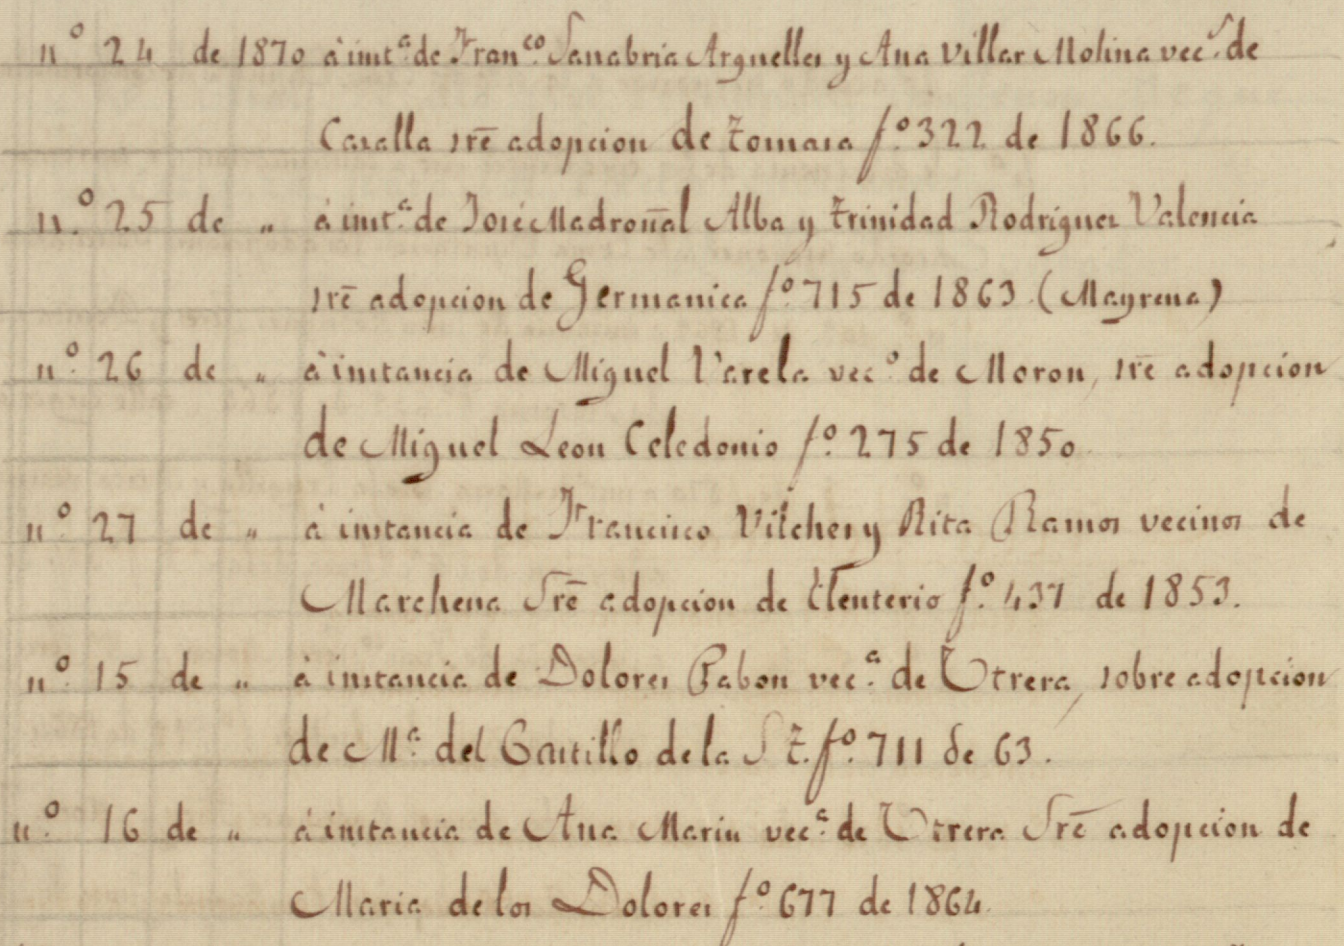 nº 24 de 1870 á instª de Franco. Sanabria Arguelles y Ana Villar Molina vecs. de
Cazalla sre adopcion de Tomasa fº 322 de 1866.
nº 25 de „ á instª de José Madroñal Alba y Trinidad Rodriguez Valencia
sre adopcion de Germanica fº 715 de 1863 (Mayrena)
nº 26 de „ á instancia de Miguel Varela vecº de Moron, sre adopcion
de Miguel Leon Celedonio fº 275 de 1850.
nº 27 de „ á instancia de Francisco Vilches y Rita Ramos vecinos de
Marchena Sre adopcion de Eleuterio fº 437 de 1853.
nº 15 de „ á instancia de Dolores Pabon vecª de Utrera, sobre adopcion
de Mª del Castillo de la S T. fº 711 de 63.
nº 16 de „ á instancia de Ana Marin vecª de Utrera Sre adopcion de
Maria de los Dolores fº 677 de 1864.